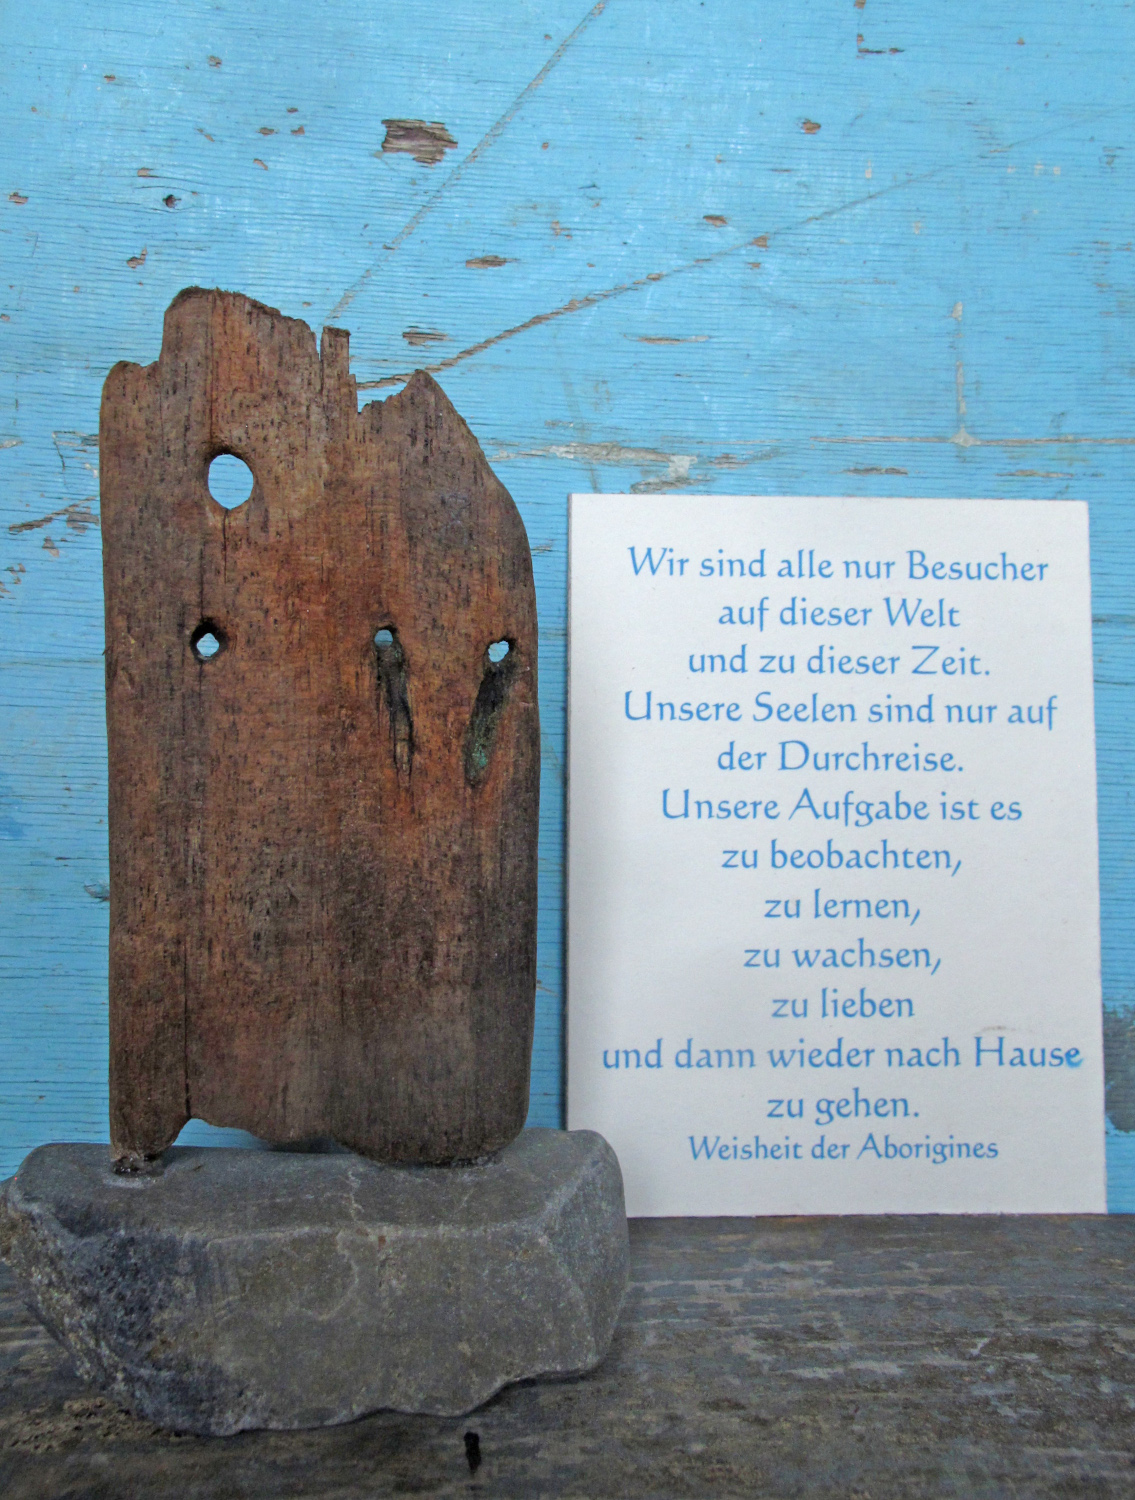 Wir sind alle nur Besucher
auf dieser Welt
und zu dieser Zeit.
Unsere Seelen sind nur auf
der Durchreise.
Unsere Aufgabe ist es
zu beobachten,
zu lernen,
zu wachsen,
zu lieben
und dann wieder nach Hause
zu gehen.
Weisheit der Aborigines